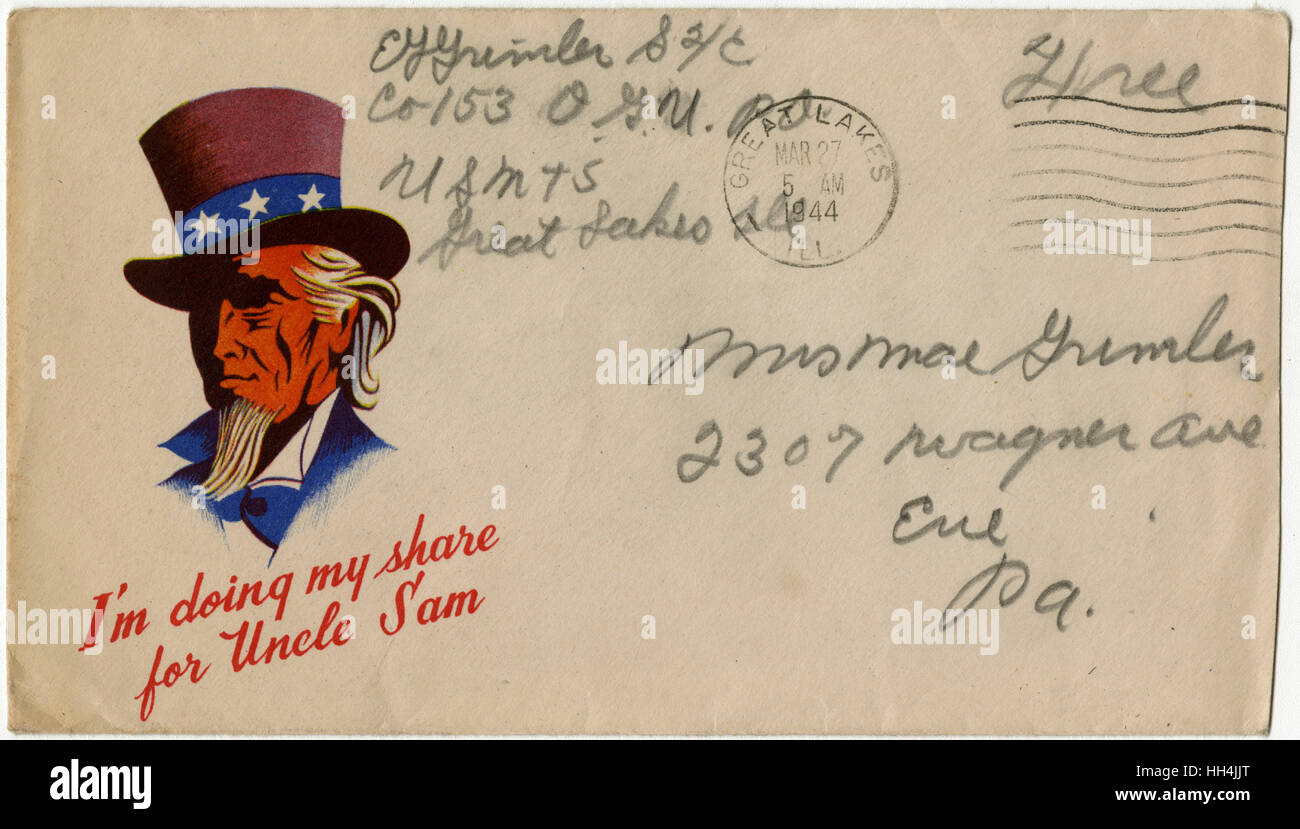 EJ Grimler S 2/C
Co-153 O.G.U.
USMTS
Great Lakes Ill
Free
GREAT LAKES
MAR 27
5 AM
1944
ILL.
Mrs Mae Grimler
2307 Wagner Ave
Erie
Pa.
I'm doing my share
for Uncle Sam
alamy
Image ID: HH4JJT
www.alamy.com